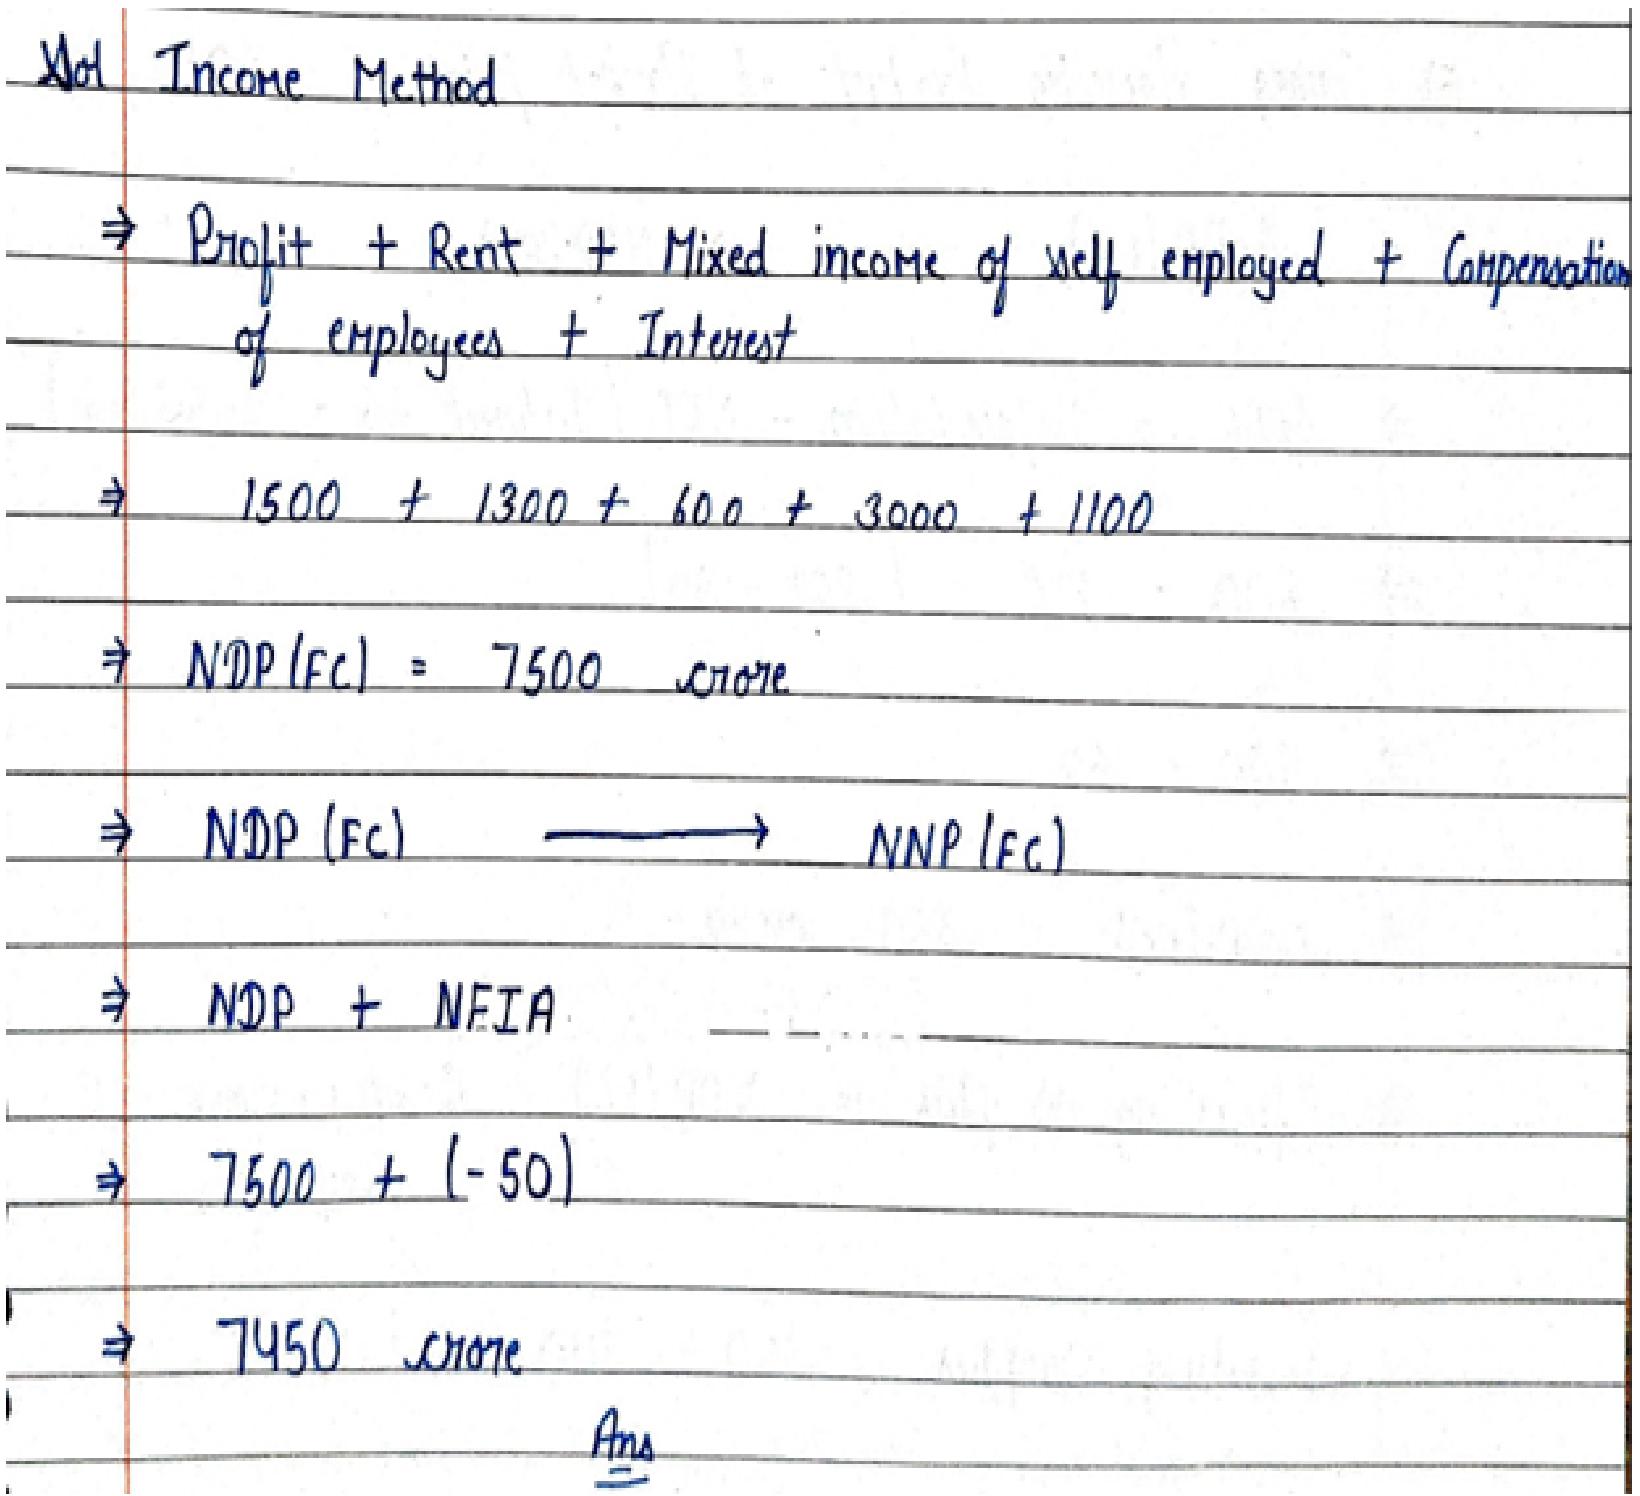 Sol Income Method
⇒ Profit + Rent + Mixed income of self employed + Compensation
of employees + Interest
⇒ 1500 + 1300 + 600 + 3000 + 1100
⇒ NDP (FC) = 7500 crore
⇒ NDP (FC) ⟶ NNP (FC)
⇒ NDP + NFIA
⇒ 7500 + (-50)
⇒ 7450 crore
Ans